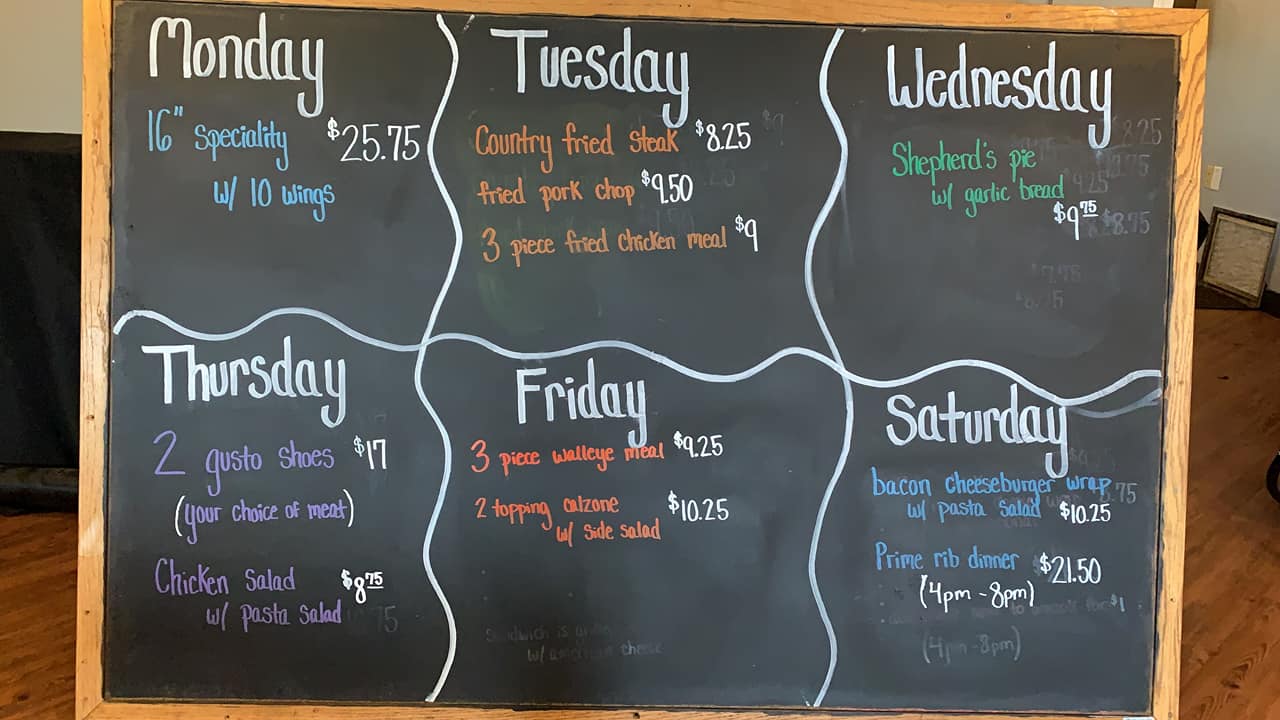 Monday
16" Speciality $25.75
w/ 10 wings
Tuesday
Country fried steak $8.25
fried pork chop $9.50
3 piece fried chicken meal $9
Wednesday
Shepherd's pie
w/ garlic bread
$9.75
Thursday
2 gusto shoes $17
(your choice of meat)
Chicken Salad $8.75
w/ pasta salad
Friday
3 piece walleye meal $9.25
2 topping calzone $10.25
w/ side salad
Saturday
bacon cheeseburger wrap
w/ pasta salad $10.25
Prime rib dinner $21.50
(4pm - 8pm)
(4pm - 8pm)